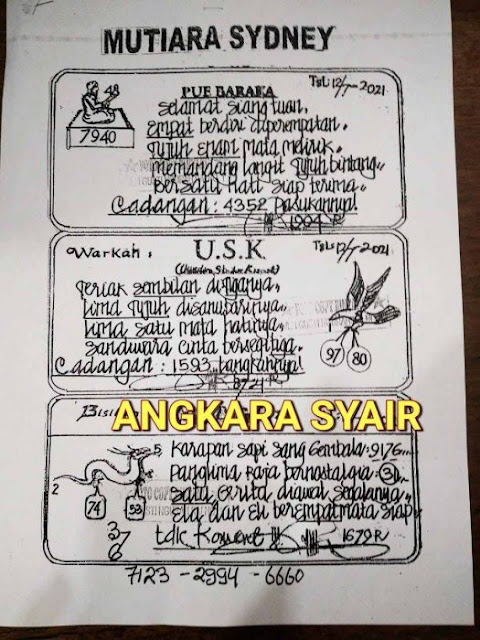 MUTIARA SYDNEY
PUF BARAKA
Tgl: 12/7-2021
48
7940
Selamat siang tuan,
Empat berdiri diperempatan,
Tujuh enam mata melirik,
Memandang langit tujuh bintang,
Bersatu hati siap terima,,
Cadangan : 4352 pasukannya!
1904 R
Warkah :
U.S.K
Tgl: 12/7-2021
Teriak sembilan
Lima tujuh disanubarinya,
Lima satu mata hatinya,
Sandiwara cinta bersegitiga,
Cadangan : 1593 bangkahnya!
8721 R
97
80
Bisi
ANGKARA SYAIR
5
2
74
53
376
Karapan sapi sang Gembala : 9176
Panglima Raja bernostalgia : 3
Satu cerita diawal segalanya
Ela dan eli berempat mata siap
1672 R
7123 - 2994 - 6660